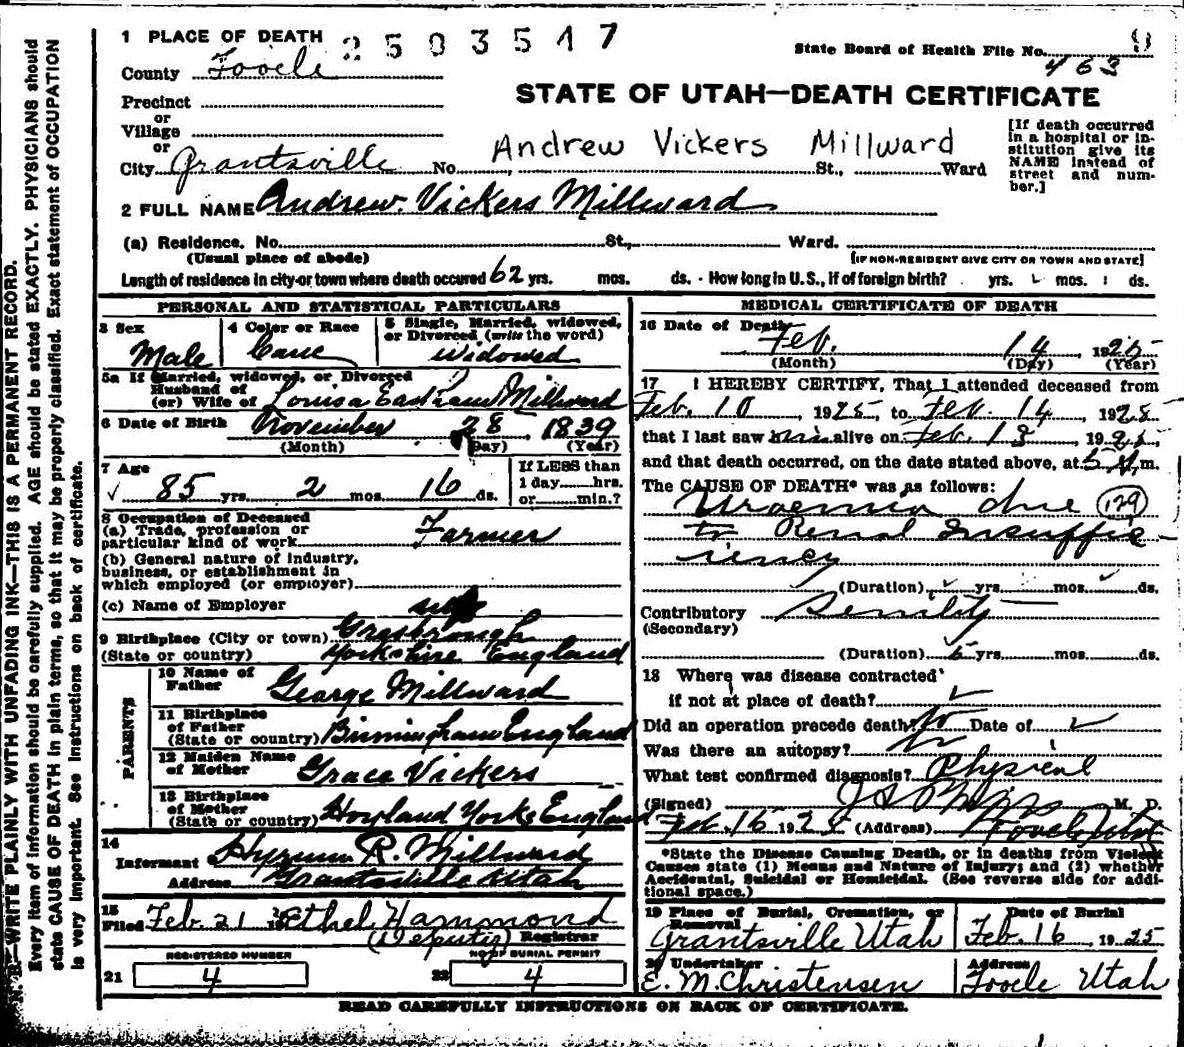 1 PLACE OF DEATH 2503517
State Board of Health File No. 463
County Tooele
STATE OF UTAH—DEATH CERTIFICATE
Precinct
or
Village
or
City Grantsville No. Andrew Vickers Millward St., Ward
[If death occurred
in a hospital or in-
stitution give its
NAME instead of
street and num-
ber.]
2 FULL NAME Andrew Vickers Millward
(a) Residence. No. St., Ward.
(Usual place of abode) [IF NON-RESIDENT GIVE CITY OR TOWN AND STATE]
Length of residence in city or town where death occured 62 yrs. mos. ds. - How long in U.S., if of foreign birth? yrs. mos. ds.
PERSONAL AND STATISTICAL PARTICULARS
3 Sex
Male
4 Color or Race
Cauc
5 Single, Married, widowed,
or Divorced (write the word)
widowed
5a If Married, widowed, or Divorced
Husband of
(or) Wife of Louisa Eastham Millward
6 Date of Birth November 28 1839
(Month) (Day) (Year)
7 Age
85 yrs. 2 mos. 16 ds.
If LESS than
1 day hrs.
or min.?
8 Occupation of Deceased
(a) Trade, profession or
particular kind of work Farmer
(b) General nature of industry,
business, or establishment in
which employed (or employer)
(c) Name of Employer self
9 Birthplace (City or town) Grasbrough
(State or country) Yorkshire England
PARENTS
10 Name of
Father George Millward
11 Birthplace
of Father
(State or country) Birmingham England
12 Maiden Name
of Mother Grace Vickers
13 Birthplace of
Mother
(State or country) Hoyland Yorks England
14
Informant Hyrum R. Millward
Address Grantsville Utah
15
Filed Feb. 21 19 Ethel Hammond
(Deputy) Registrar
REGISTERED NUMBER
21 4
NO. OF BURIAL PERMIT
22 4
MEDICAL CERTIFICATE OF DEATH
16 Date of Death Feb. 14, 1925
(Month) (Day) (Year)
17 I HEREBY CERTIFY, That I attended deceased from
Feb. 10, 1925, to Feb. 14 1925
that I last saw him alive on Feb. 13, 1925,
and that death occurred, on the date stated above, at 5 A m.
The CAUSE OF DEATH* was as follows:
Uraemia due 129
to Renal Insuffic-
iency
(Duration) yrs. mos. ds.
Contributory Senility
(Secondary)
(Duration) 5 yrs. mos. ds.
18 Where was disease contracted
if not at place of death?
Did an operation precede death? No Date of
Was there an autopsy? No
What test confirmed diagnosis? Physical
(Signed) M. D.
Feb. 16 1925 (Address) Tooele Utah
*State the Disease Causing Death, or in deaths from Violent
Causes state (1) Means and Nature of Injury; and (2) whether
Accidental, Suicidal or Homicidal. (See reverse side for addi-
tional space.)
19 Place of Burial, Cremation, or
Removal
Grantsville Utah
Date of Burial
Feb. 16 1925
20 Undertaker
E. M. Christensen
Address
Tooele Utah
READ CAREFULLY INSTRUCTIONS ON BACK OF CERTIFICATE.
N. B.—WRITE PLAINLY WITH UNFADING INK—THIS IS A PERMANENT RECORD.
Every item of information should be carefully supplied. AGE should be stated EXACTLY. PHYSICIANS should
state CAUSE OF DEATH in plain terms, so that it may be properly classified. Exact statement of OCCUPATION
is very important. See instructions on back of certificate.